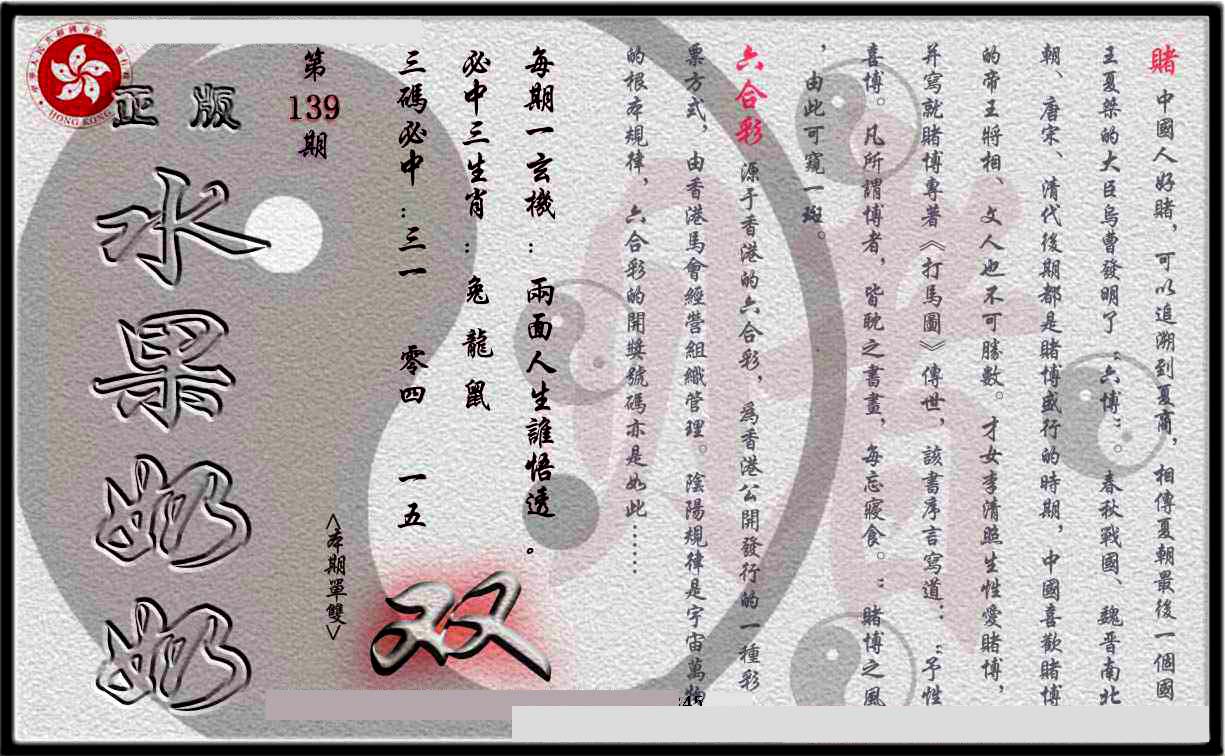 賭 中國人好賭，可以追溯到夏商，相傳夏朝最後一個國
王夏桀的大臣烏曹發明了“六博”。春秋戰國、魏晋南北
朝、唐宋、清代後期都是賭博盛行的時期，中國喜歡賭博
的帝王將相、文人也不可勝數。才女李清照生性愛賭博，
并寫就賭博專著《打馬圖》傳世，該書序言寫道：“予性
喜博。凡所謂博者，皆耽之書畫，每忘寢食。”賭博之風
，由此可窺一斑。
六合彩 源于香港的六合彩，爲香港公開發行的一種彩
票方式，由香港馬會經營組織管理。陰陽規律是宇宙萬物
的根本規律，六合彩的開獎號碼亦是如此……
每期一玄機：兩面人生誰悟透。
必中三生肖：兔 龍 鼠
三碼必中：三一 零四 一五
双
<本期單雙>
第
139
期
正版
水果奶奶
HONG KONG